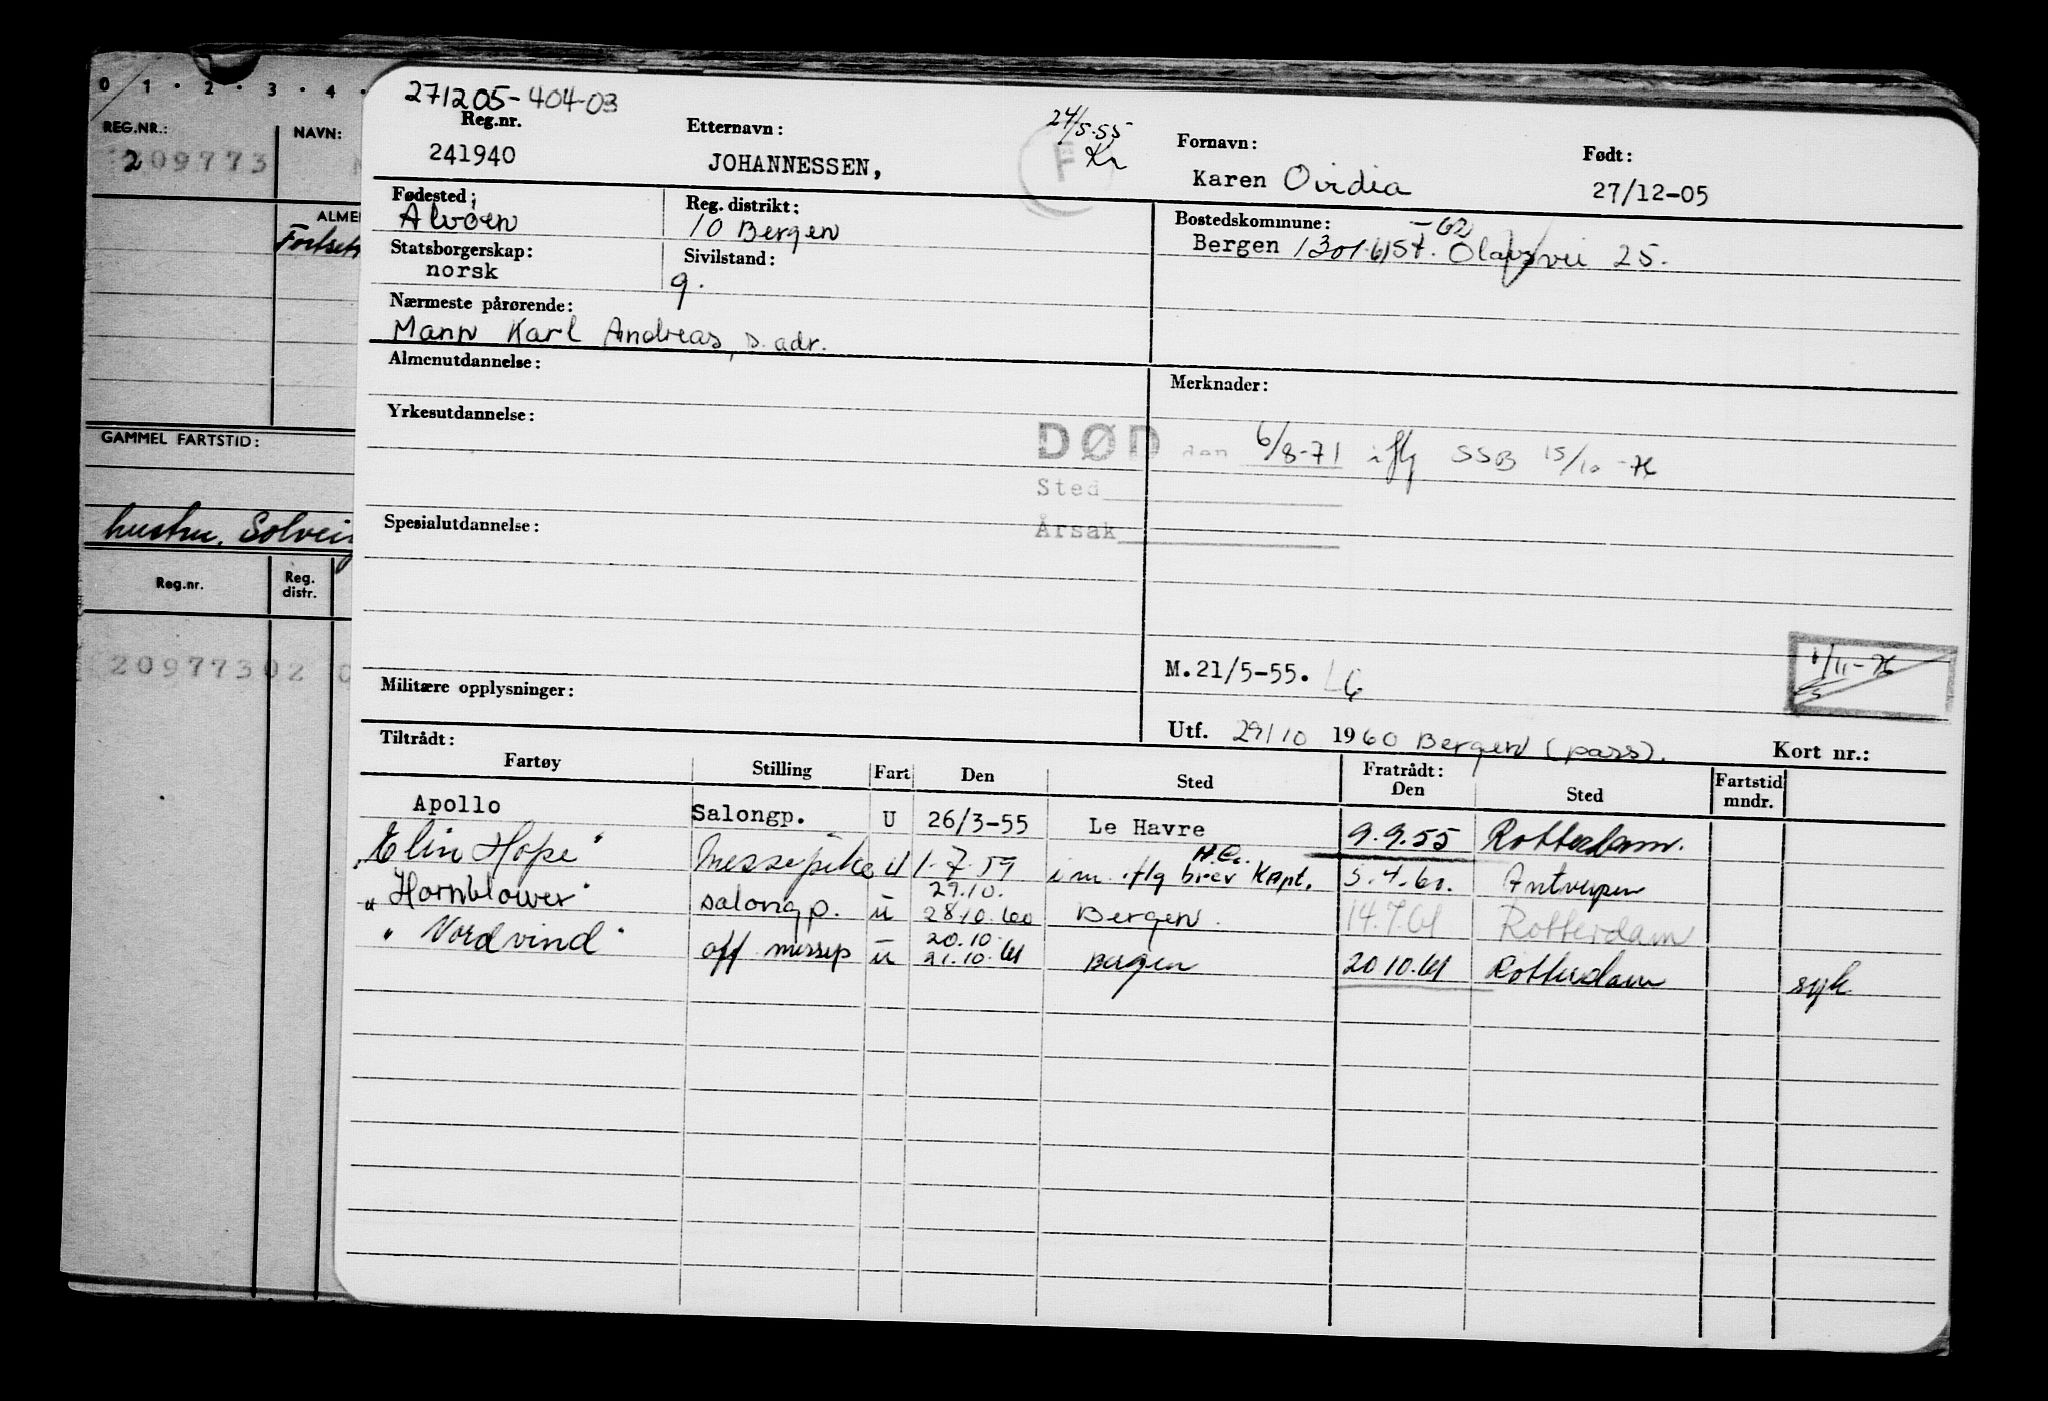 0 · 1 · 2 · 3 · 4 ·
REG.NR.:
NAVN:
209773
ALME
Fortset
GAMMEL FARTSTID:
hustru, Solveig
Reg.nr.
Reg. distr.
20977302 0
271205-404-03
Reg.nr.
241940
Etternavn:
JOHANNESSEN,
24/5-55
Kr
F
Fornavn:
Karen Ovidia
Født:
27/12-05
Fødested:
Alvøen
Reg. distrikt:
10 Bergen
Bostedskommune:
-62
Bergen 1301-61 St. Olavs vei 25.
Statsborgerskap:
norsk
Sivilstand:
g.
Nærmeste pårørende:
Mann Karl Andreas, s. adr.
Almenutdannelse:
Merknader:
Yrkesutdannelse:
DØD den 6/8-71 iflg SSB 15/10-76
Sted
Årsak
Spesialutdannelse:
M.21/5-55.
1/11-76
Militære opplysninger:
Utf. 29/10 1960 Bergen (pass).
Kort nr.:
Tiltrådt:
Fratrådt:
Fartøy Stilling Fart Den Sted Den Sted Fartstid mndr.
Apollo Salongp. U 26/3-55 Le Havre 9.9.55 Rotterdam.
"Elin Hope" Messepike U 1-7-59 i m. iflg brev Kapt. 5.4.60. Antwerpen
29.10.
"Hornblower" salongp. u 28.10.60 Bergen. 14.7.61 Rotterdam
20.10.
"Nordvind" off. messep u 21.10.61 Bergen 20.10.61 Rotterdam syk